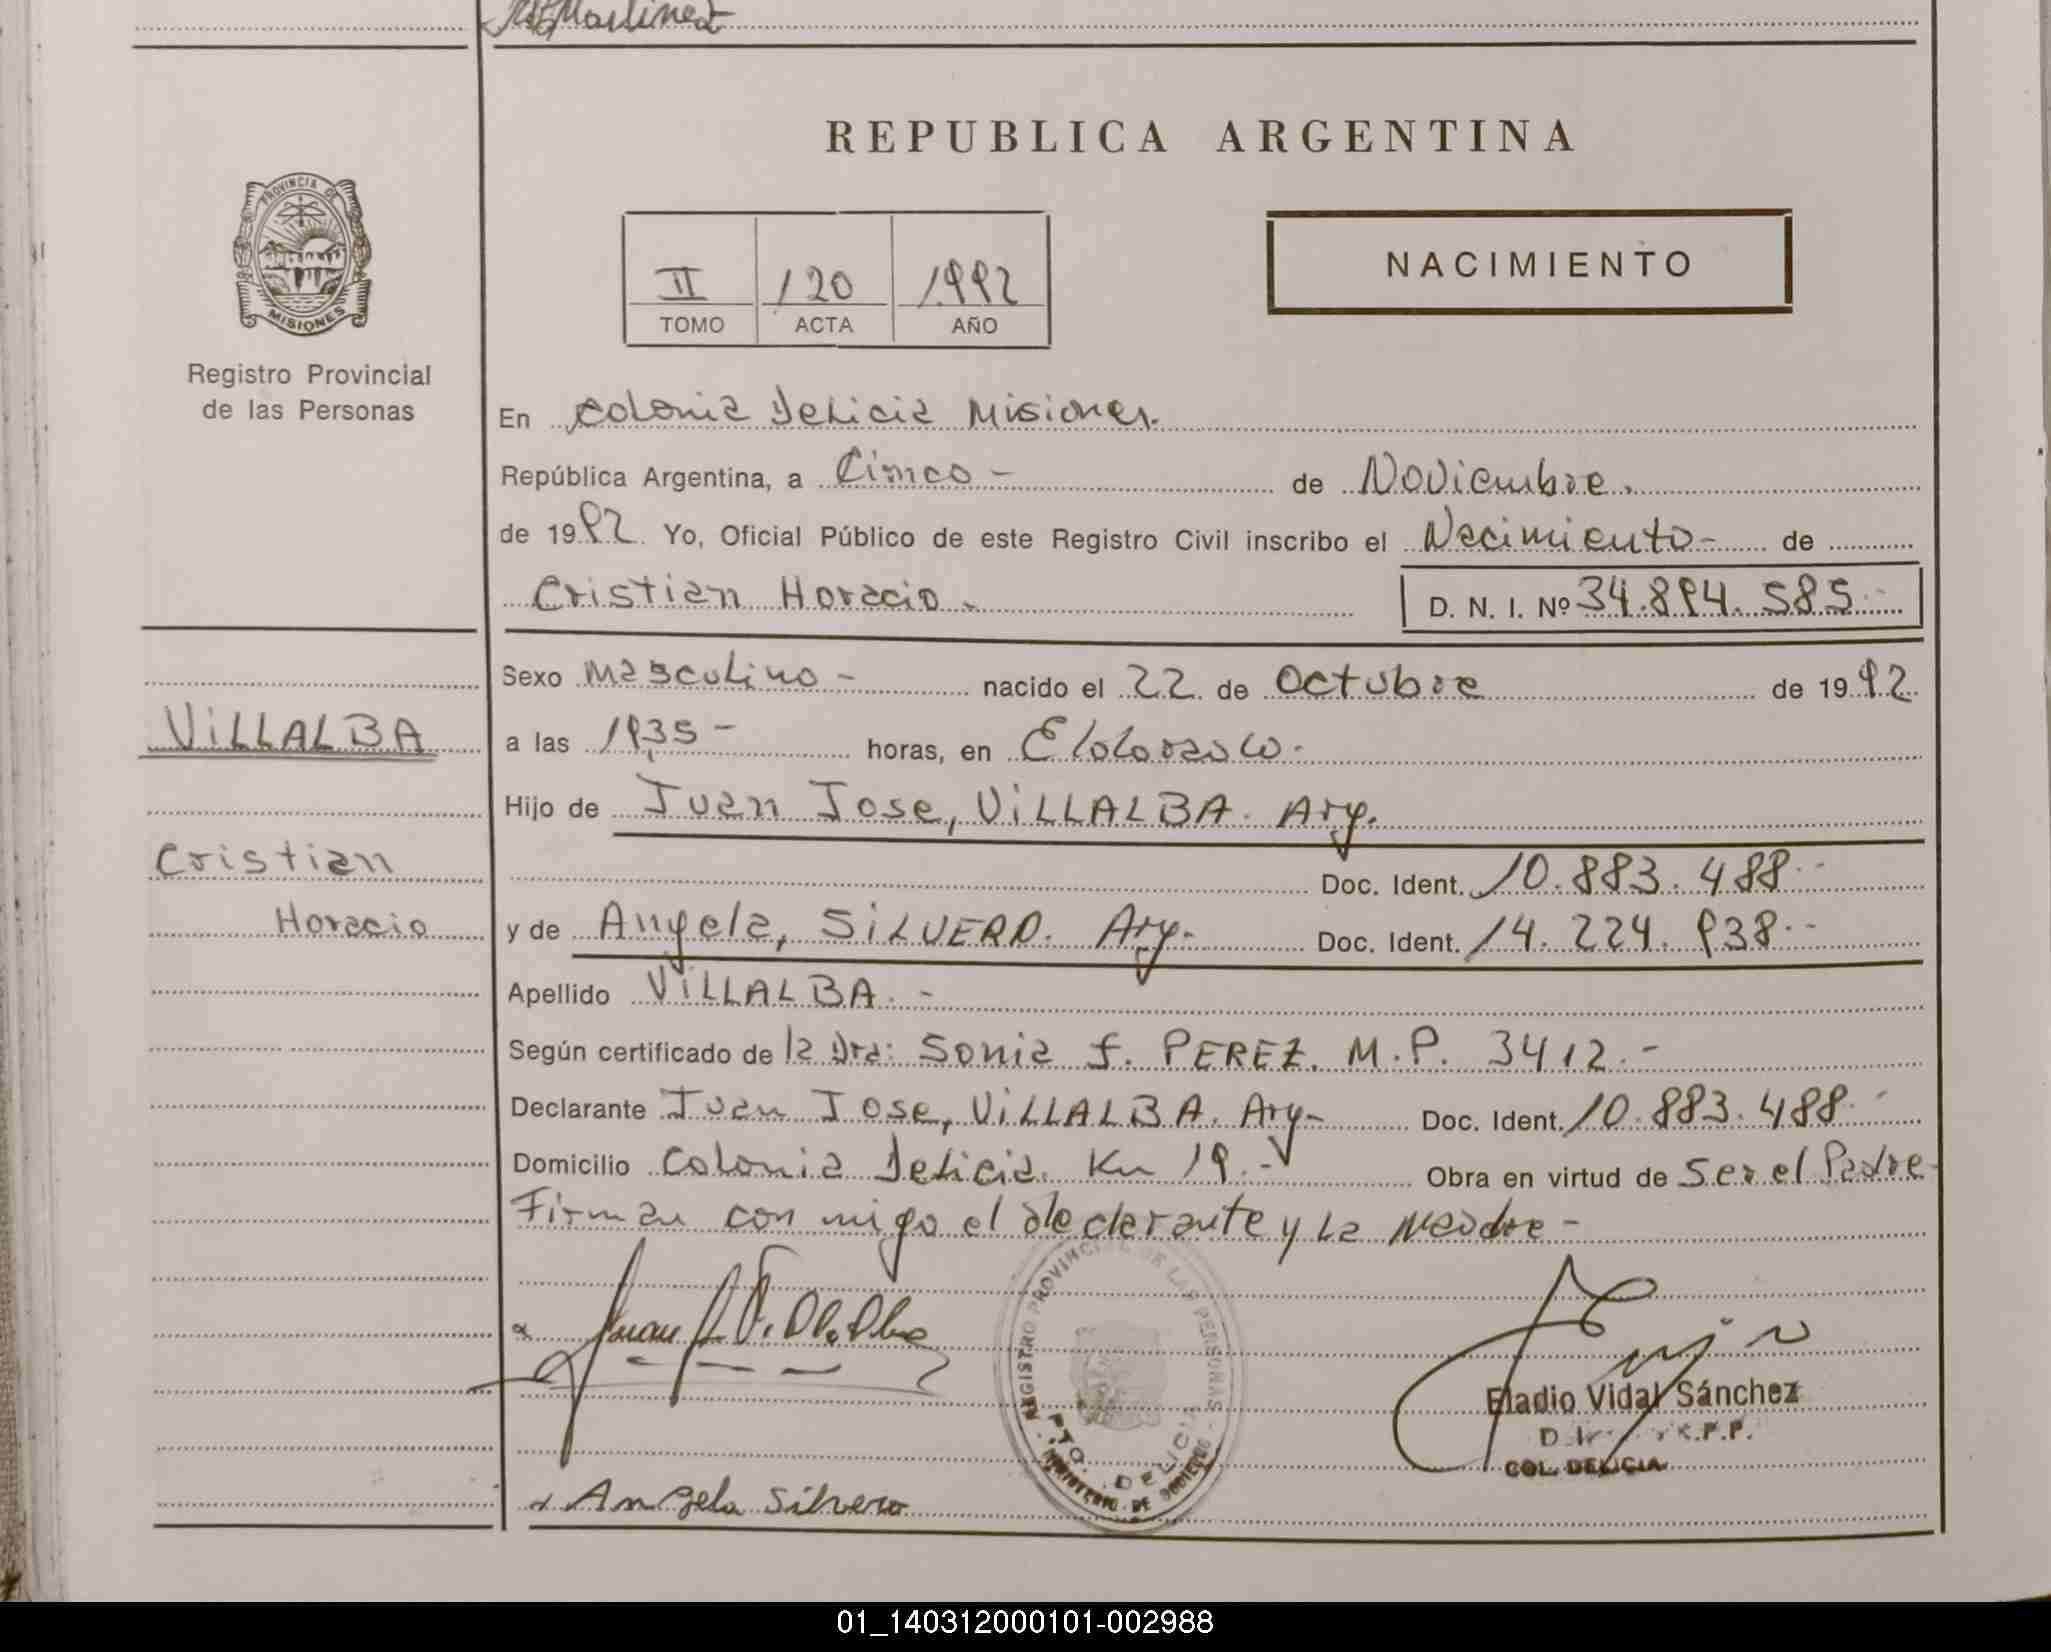 Martinez
REPUBLICA ARGENTINA
PROVINCIA DE
MISIONES
Registro Provincial
de las Personas
II 120 1992
TOMO ACTA AÑO
NACIMIENTO
En Colonia Delicia Misiones.
República Argentina, a Cinco - de Noviembre.
de 1992 Yo, Oficial Público de este Registro Civil inscribo el Nacimiento - de
Cristian Horacio. D. N. I. Nº 34.894.585.-
Sexo Masculino - nacido el 22 de Octubre de 1992
VILLALBA
a las 1935 - horas, en Eldorado.
Hijo de Juan Jose, VILLALBA. Arg.
Cristian
Doc. Ident. 10.883.488.-
Horacio
y de Angela, SILVERO. Arg. Doc. Ident. 14.224.938.-
Apellido VILLALBA. -
Según certificado de la Dra: Sonia f. PEREZ. M.P. 3412.-
Declarante Juan Jose, VILLALBA. Arg- Doc. Ident. 10.883.488.-
Domicilio Colonia Delicia. Km 19.- Obra en virtud de Ser el Padre-
Firman con migo el declarante y La Madre -
Juan J. Villalba
REGISTRO PROVINCIAL DE LAS PERSONAS
PTO. DELICIA
MINISTERIO DE GOBIERNO
Eladio Vidal Sánchez
R.P.P.
COL. DELICIA
Angela Silvero
01_140312000101-002988